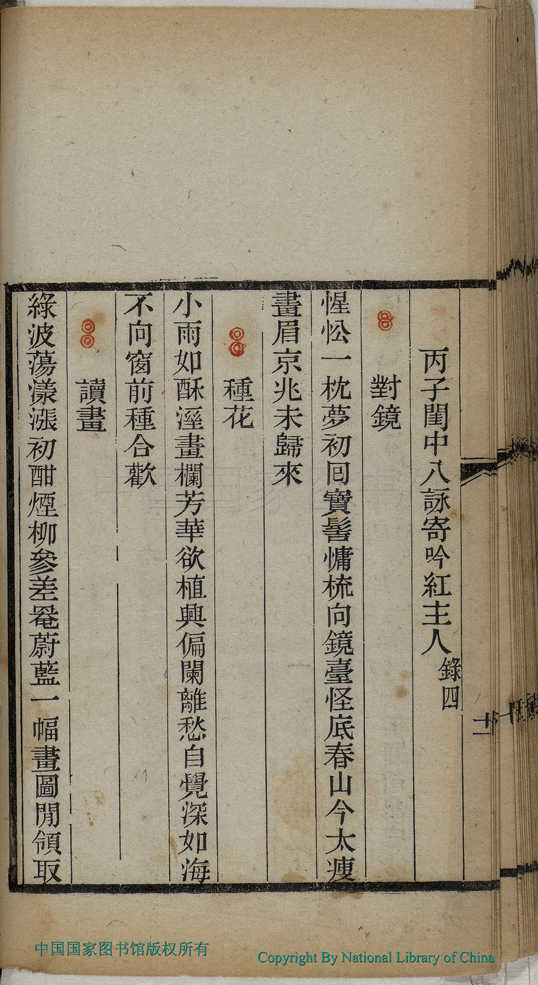 丙子閨中八詠寄吟紅主人錄四
對鏡
惺忪一枕夢初回寶髻慵梳向鏡臺怪底春山今太瘦
畫眉京兆未歸來
種花
小雨如酥溼畫欄芳華欲植興偏闌離愁自覺深如海
不向窗前種合歡
讀畫
綠波蕩漾漲初酣煙柳參差罨蔚藍一幅畫圖閒領取
十一
中国国家图书馆版权所有
Copyright By National Library of China